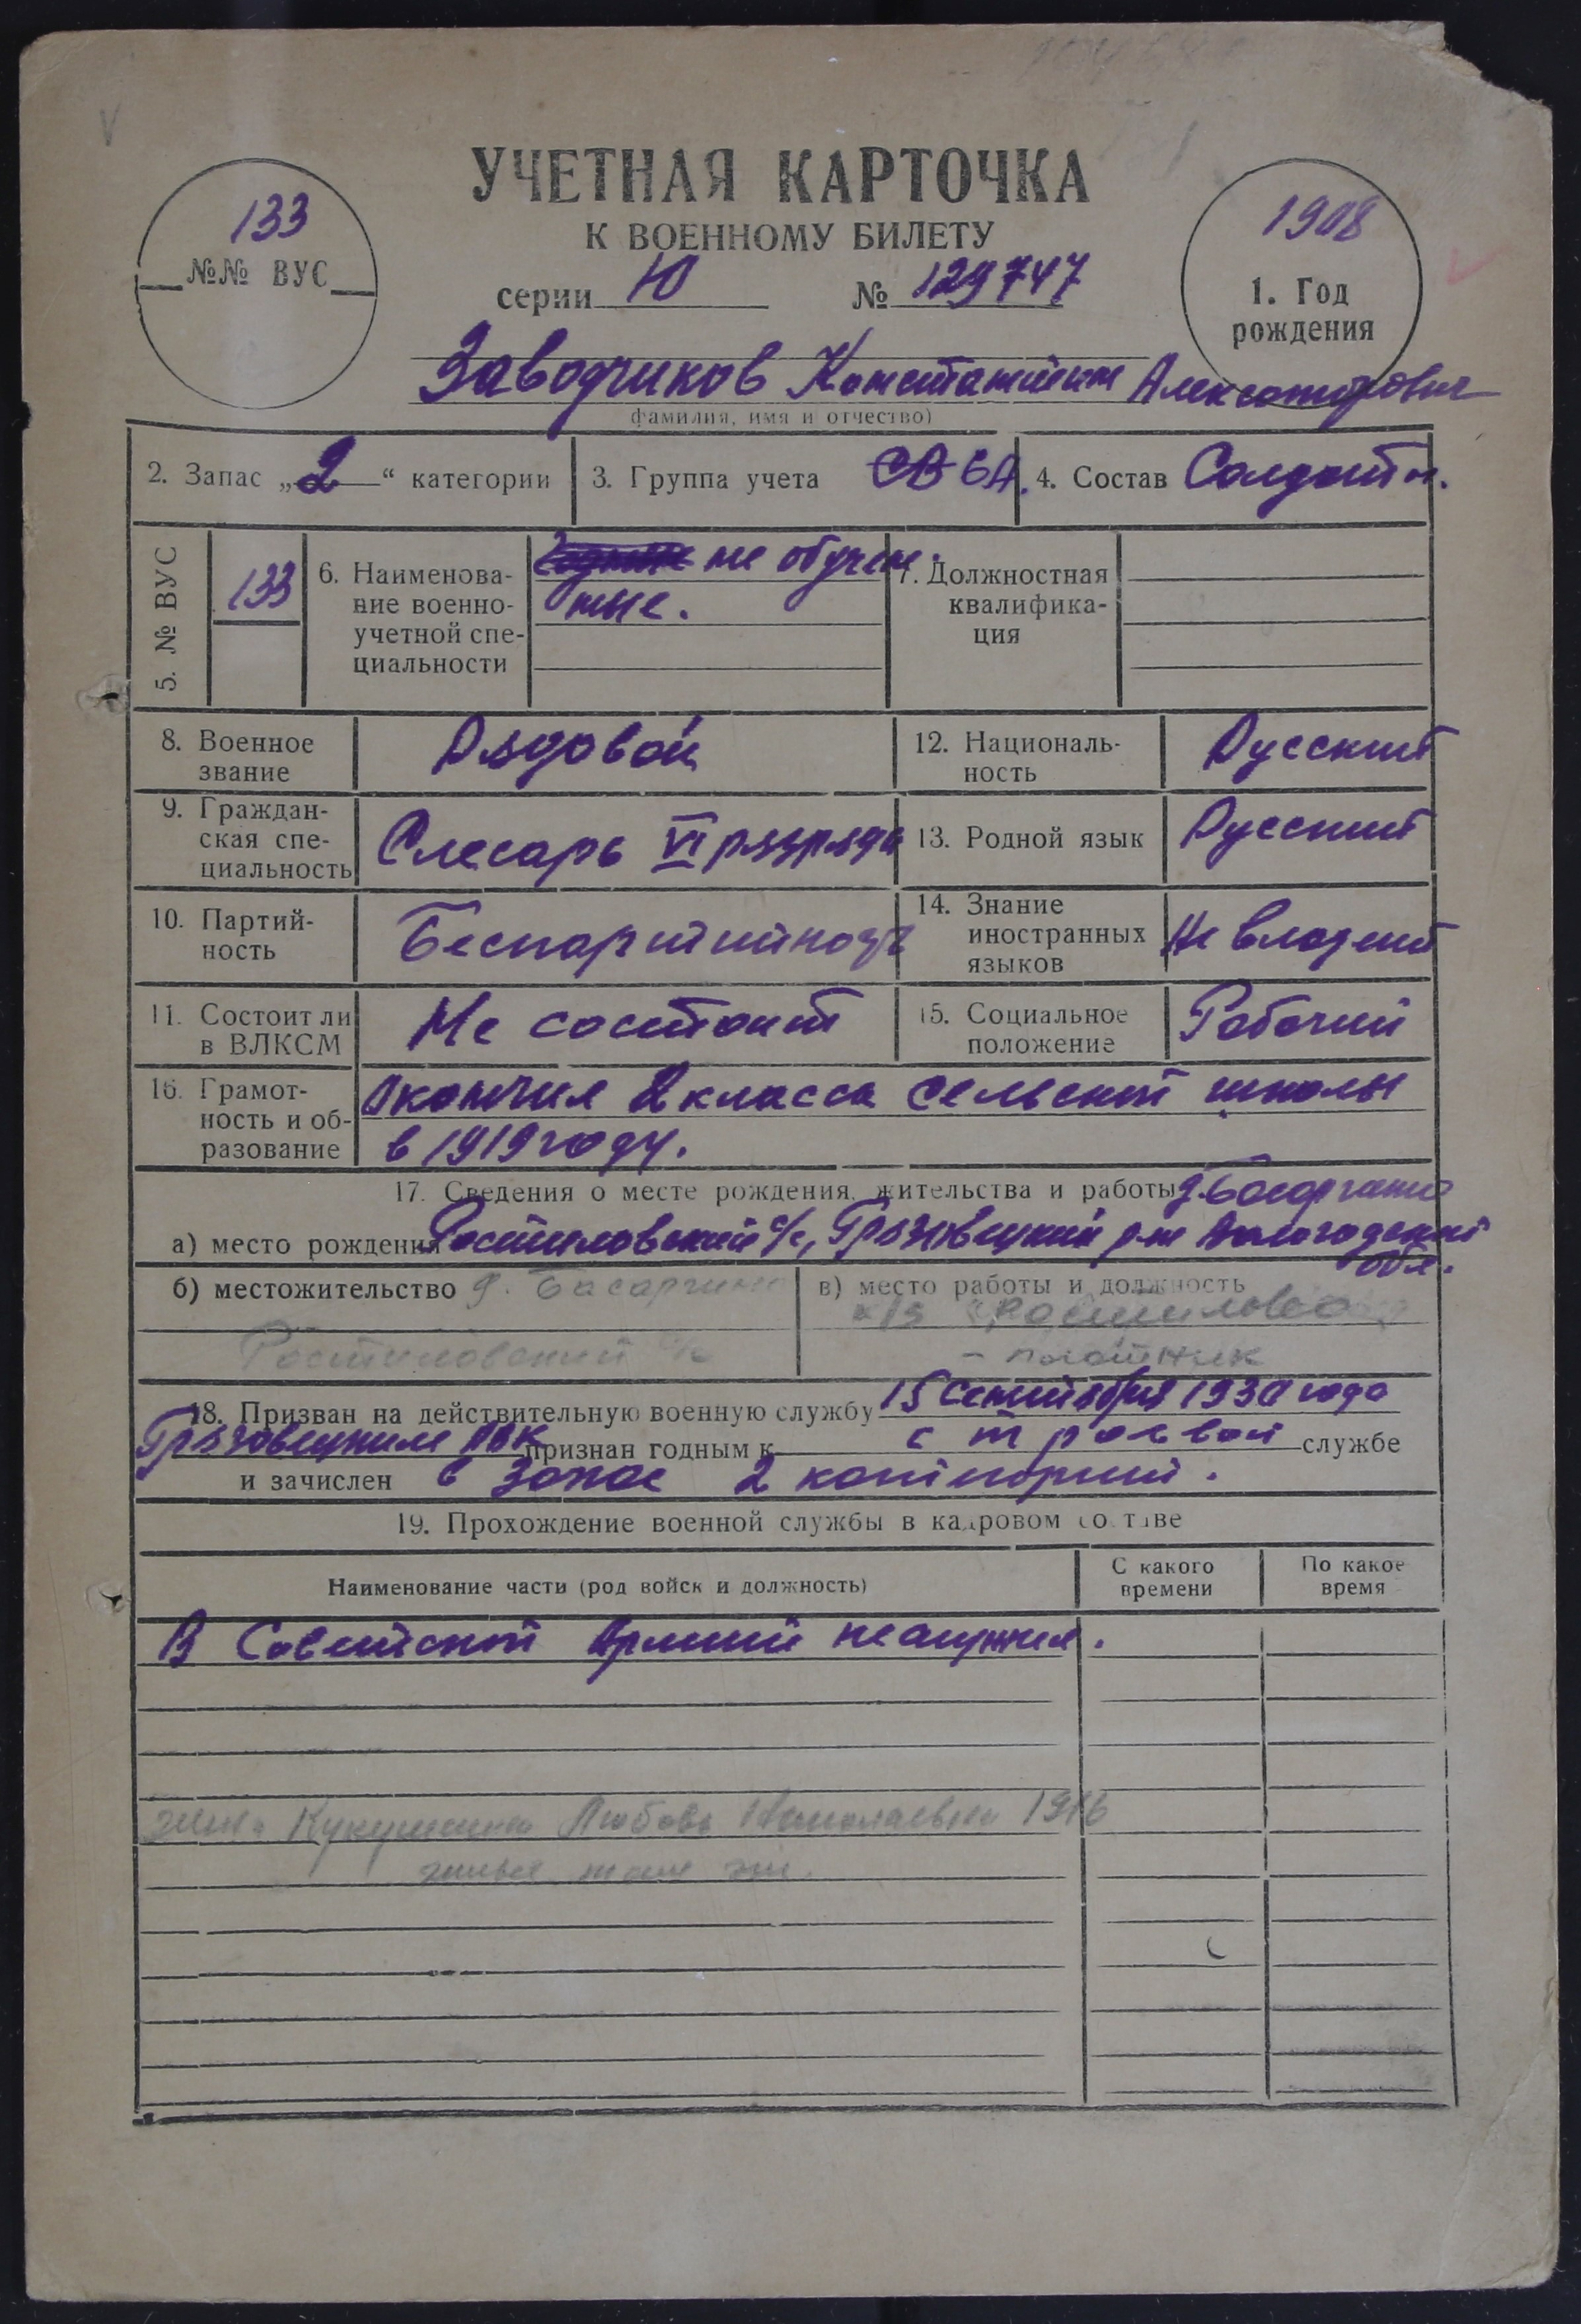 УЧЕТНАЯ КАРТОЧКА
К ВОЕННОМУ БИЛЕТУ
серии Ю № 129747
133
№№ ВУС
1908
1. Год
рождения
Заводчиков Константин Александрович
фамилия, имя и отчество)
2. Запас „2“ категории
3. Группа учета СВ СА.
4. Состав Солдаты.
5. № ВУС
133
6. Наименова-
ние военно-
учетной спе-
циальности
не обучен
ные.
7. Должностная
квалифика-
ция
8. Военное
звание
Рядовой
12. Националь-
ность
Русский
9. Граждан-
ская спе-
циальность
Слесарь VI разряда
13. Родной язык
Русский
10. Партий-
ность
Беспартийного
14. Знание
иностранных
языков
Не владеет
11. Состоит ли
в ВЛКСМ
Не состоит
15. Социальное
положение
Рабочий
16. Грамот-
ность и об-
разование
Окончил 2 класса сельской школы
в 1919 году.
17. Сведения о месте рождения, жительства и работы д. Басаргино
а) место рождения Ростиловский с/с, Грязовецкий р-н Вологодской
обл.
б) местожительство д. Басаргино
Ростиловский с/с
в) место работы и должность
к/з "Ростилово"
- плотник
18. Призван на действительную военную службу 15 сентября 1930 года
Грязовецким РВК признан годным к строевой службе
и зачислен в запас 2 категории.
19. Прохождение военной службы в кадровом составе
Наименование части (род войск и должность)
С какого
времени
По какое
время
В Советской Армии не служил.
жена Кукушкина Любовь Николаевна 1916
живет там же.